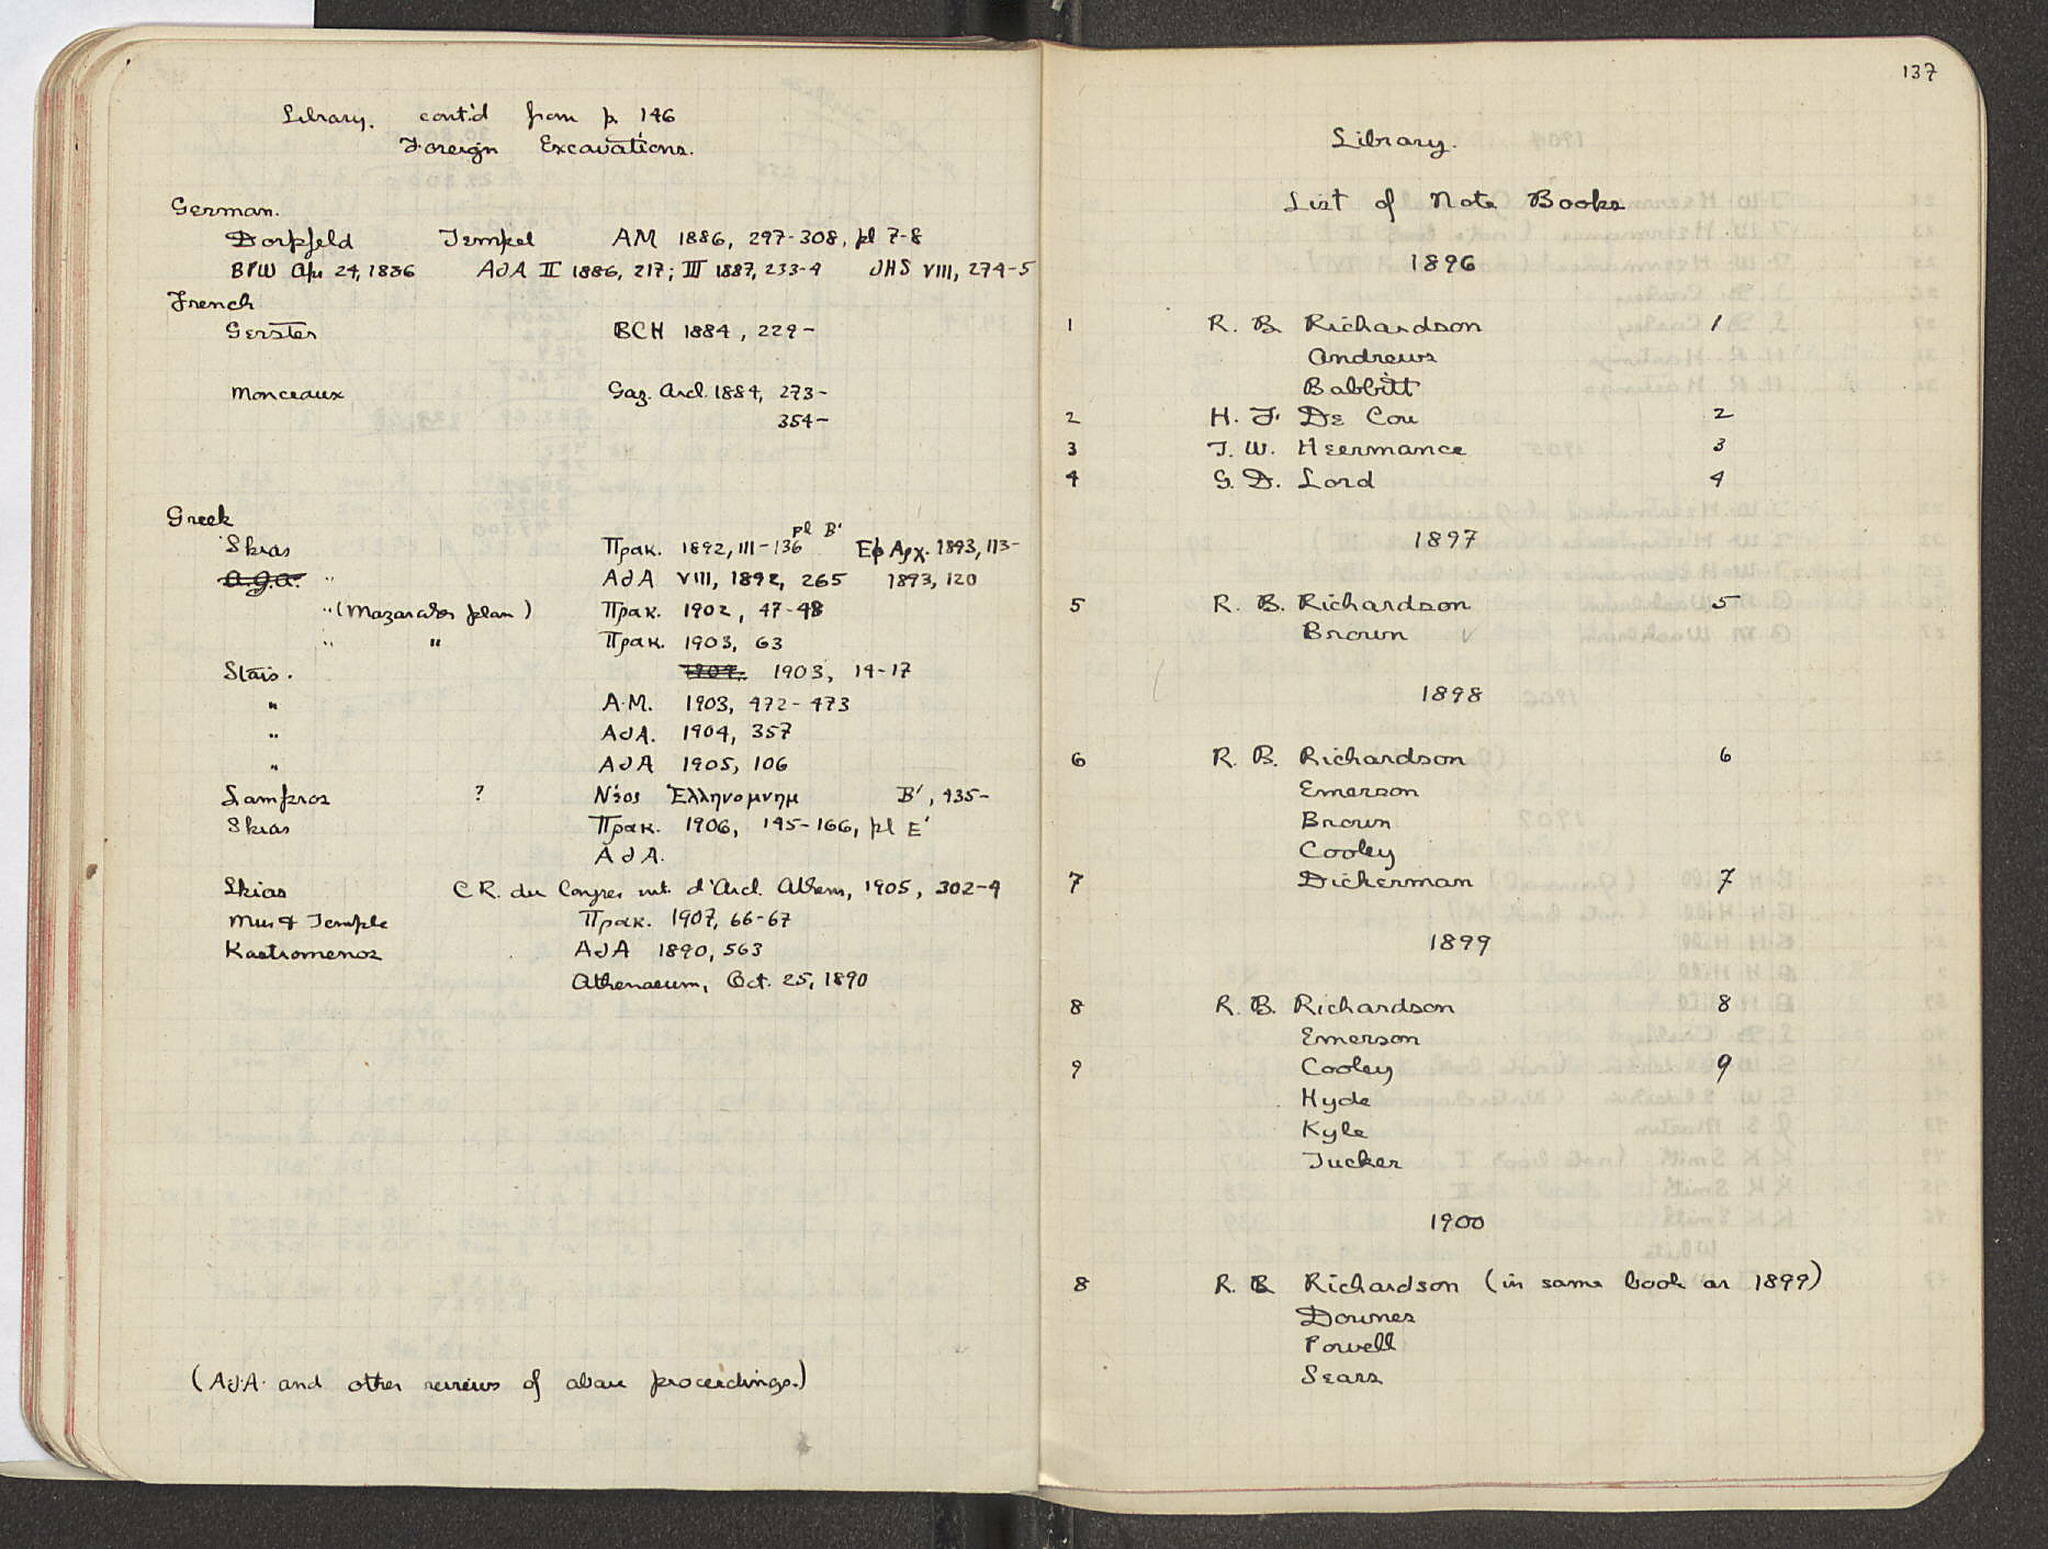 Library. cont'd from p. 146
Foreign Excavations.
German.
Dorpfeld Tempel AM 1886, 297-308, pl 7-8
BPW Apr 24, 1886 AJA II 1886, 217; III 1887, 233-4 JHS VIII, 274-5
French
Gerster BCH 1884, 229-
Monceaux Gaz. Arch. 1884, 273-
354-
Greek
pl B'
Skias Πρακ. 1892, 111-136 Εφ Αρχ. 1893, 113-
A.J.A. " AJA VIII, 1892, 265 1893, 120
" (Mazarakes plan) Πρακ. 1902, 47-48
" " Πρακ. 1903, 63
Stais. 1904. 1903, 14-17
" A.M. 1903, 472-473
" AJA. 1904, 357
" AJA 1905, 106
Lampros ? Νέος Ἑλληνομνημ Β', 435-
Skias Πρακ. 1906, 145-166, pl Ε'
AJA.
Skias C.R. du Congres int. d'Arch. Athens, 1905, 302-4
Mus & Temple Πρακ. 1907, 66-67
Kastromenos AJA 1890, 563
Athenaeum, Oct. 25, 1890
(AJA. and other reviews of above proceedings.)
137
Library.
List of Note Books
1896
1 R. B. Richardson 1
Andrews
Babbitt
2 H. F. De Cou 2
3 T. W. Heermance 3
4 G. D. Lord 4
1897
5 R. B. Richardson 5
Brown √
1898
6 R. B. Richardson 6
Emerson
Brown
Cooley
7 Dickerman 7
1899
8 R. B. Richardson 8
Emerson
9 Cooley 9
Hyde
Kyle
Tucker
1900
8 R. B. Richardson (in same book as 1899)
Downes
Powell
Sears